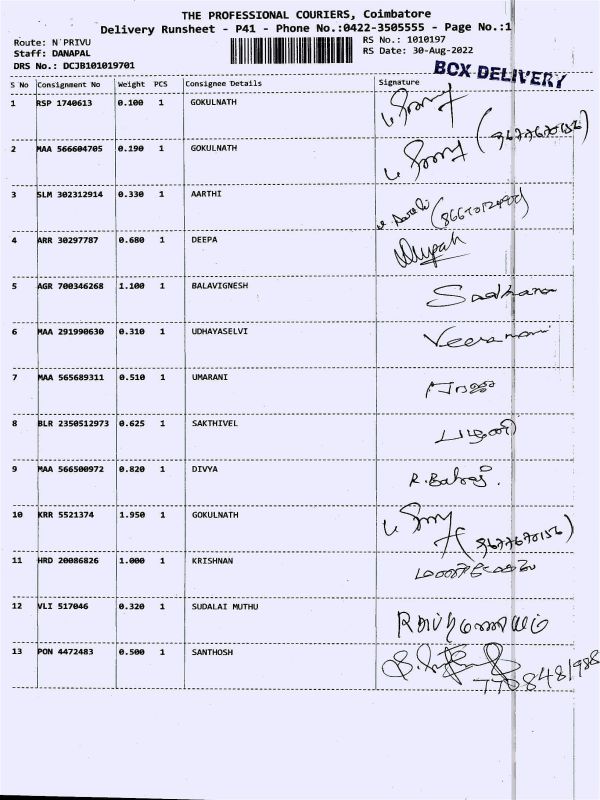 THE PROFESSIONAL COURIERS, Coimbatore
Delivery Runsheet - P41 - Phone No.:0422-3505555 - Page No.:1
Route: N PRIVU RS No.: 1010197
Staff: DANAPAL RS Date: 30-Aug-2022
DRS No.: DCJB101019701
BOX DELIVERY
S No Consignment No Weight PCS Consignee Details Signature
1 RSP 1740613 0.100 1 GOKULNATH
(9677670156)
2 MAA 566604705 0.190 1 GOKULNATH
3 SLM 302312914 0.330 1 AARTHI
4 ARR 30297787 0.680 1 DEEPA
5 AGR 700346268 1.100 1 BALAVIGNESH Sadhana
6 MAA 291990630 0.310 1 UDHAYASELVI Veeramani
7 MAA 565689311 0.510 1 UMARANI
8 BLR 2350512973 0.625 1 SAKTHIVEL
9 MAA 566500972 0.820 1 DIVYA
10 KRR 5521374 1.950 1 GOKULNATH
(9677670156)
11 HRD 20086826 1.000 1 KRISHNAN
12 VLI 517046 0.320 1 SUDALAI MUTHU
13 PON 4472483 0.500 1 SANTHOSH